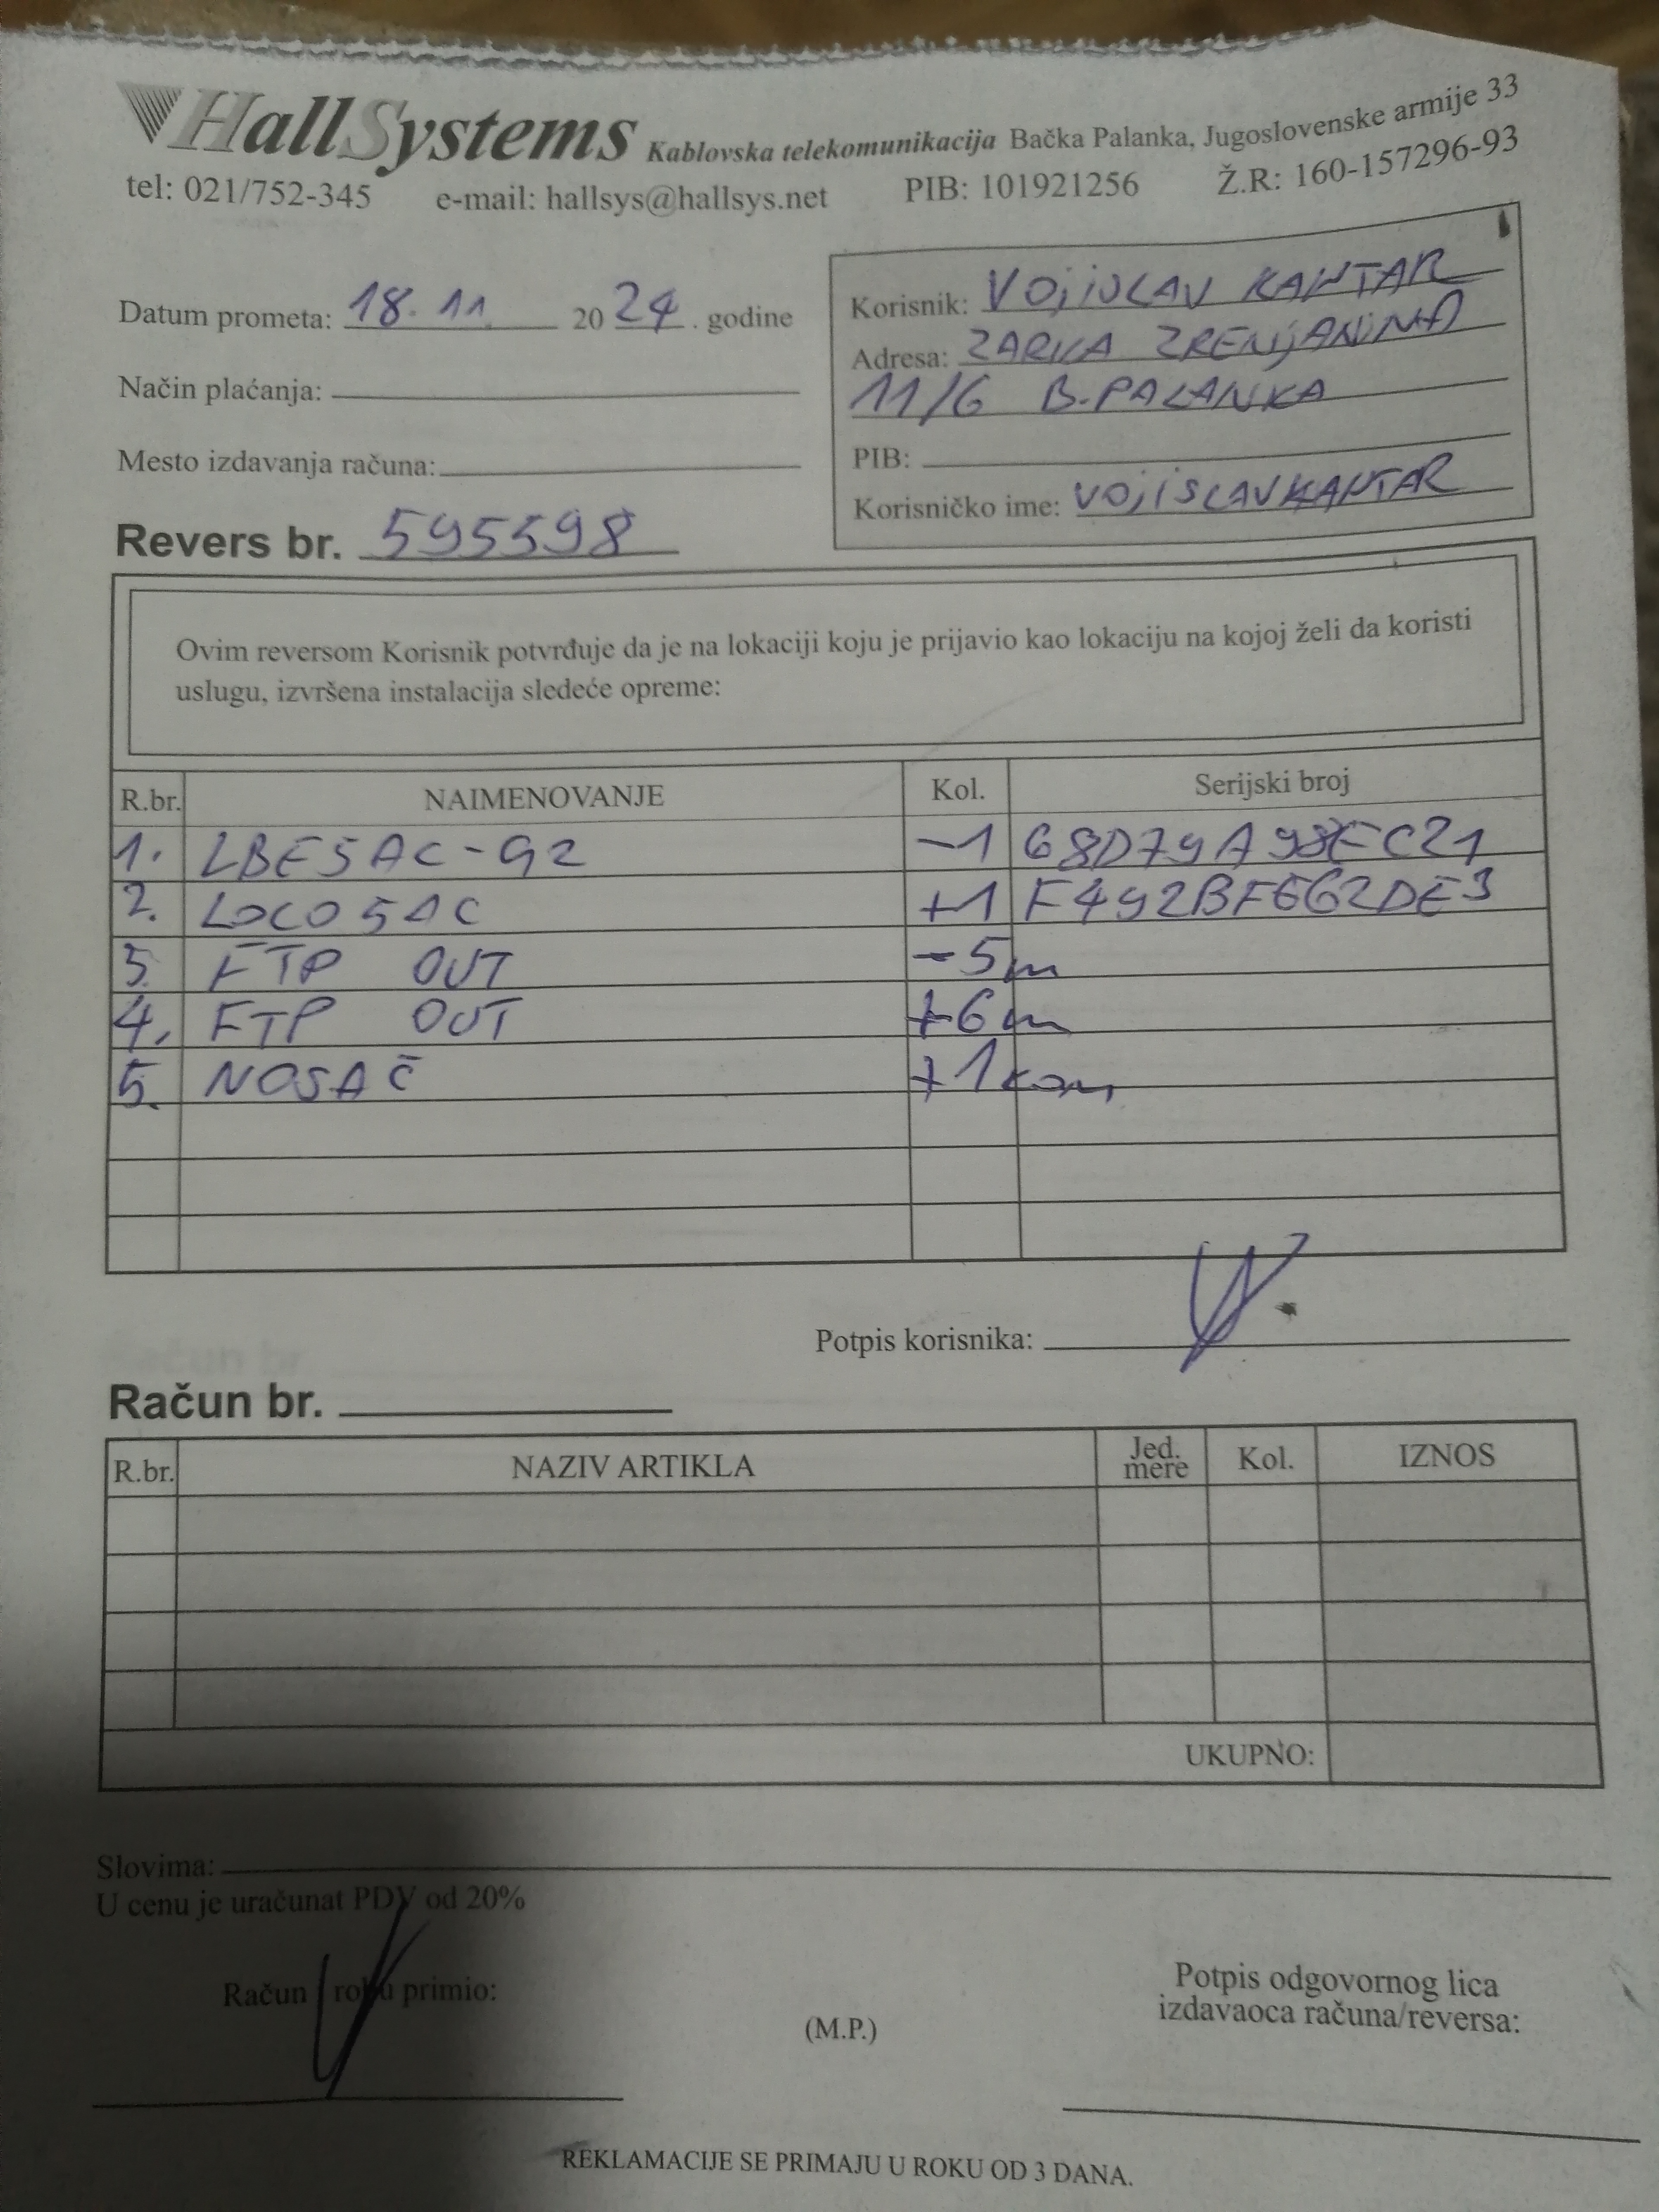 HallSystems Kablovska telekomunikacija Bačka Palanka, Jugoslovenske armije 33
tel: 021/752-345 e-mail: hallsys@hallsys.net PIB: 101921256 Ž.R: 160-157296-93
Datum prometa: 18. 11. 2024. godine
Način plaćanja:
Mesto izdavanja računa:
Korisnik: VOJISLAV KANTAR
Adresa: ZARKA ZRENJANINA
11/6 B.PALANKA
PIB:
Korisničko ime: VOJISLAVKANTAR
Revers br. 595598
Ovim reversom Korisnik potvrđuje da je na lokaciji koju je prijavio kao lokaciju na kojoj želi da koristi
uslugu, izvršena instalacija sledeće opreme:
R.br. NAIMENOVANJE Kol. Serijski broj
1. LBE5AC-G2 -1 68D79A98EC21
2. LOCO5AC +1 F492BF662DE3
3. FTP OUT -5m
4. FTP OUT +6m
5. NOSAČ +1 kom
Potpis korisnika:
Račun br.
R.br. NAZIV ARTIKLA Jed. mere Kol. IZNOS
UKUPNO:
Slovima:
U cenu je uračunat PDV od 20%
Račun i robu primio:
(M.P.)
Potpis odgovornog lica
izdavaoca računa/reversa:
REKLAMACIJE SE PRIMAJU U ROKU OD 3 DANA.